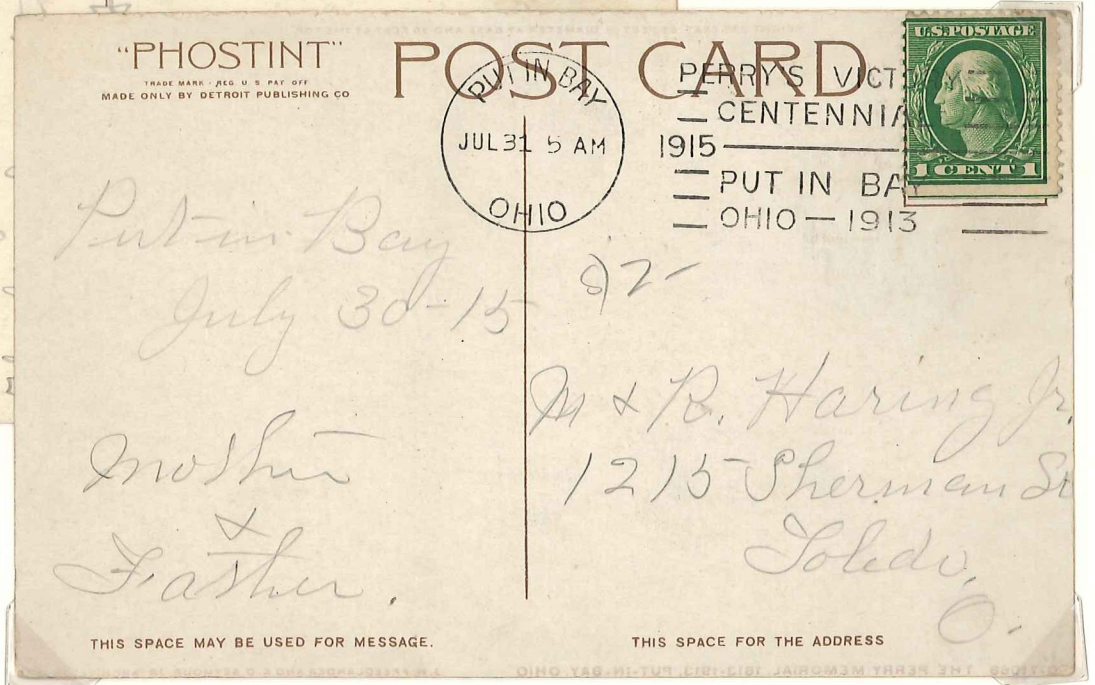 "PHOSTINT"
TRADE MARK - REG U S PAT OFF
MADE ONLY BY DETROIT PUBLISHING CO
POST CARD
PUT IN BAY
JUL 31 5 AM
OHIO
1915
PERRY'S VICTORY
CENTENNIAL
PUT IN BAY
OHIO — 1913
U.S. POSTAGE
1 CENT 1
Put in Bay
July 30-15
Mother
&
Father.
M & R. Haring Jr.
1215 Sherman St
Toledo,
O.
THIS SPACE MAY BE USED FOR MESSAGE.
THIS SPACE FOR THE ADDRESS
THE PERRY MEMORIAL, 1813-1913, PUT-IN-BAY, OHIO